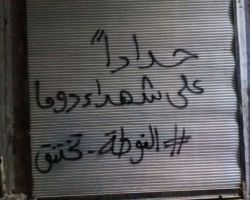 حداداً
على شهداء دوما
#الغوطة-تختنق